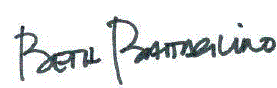 Beth Battaglino